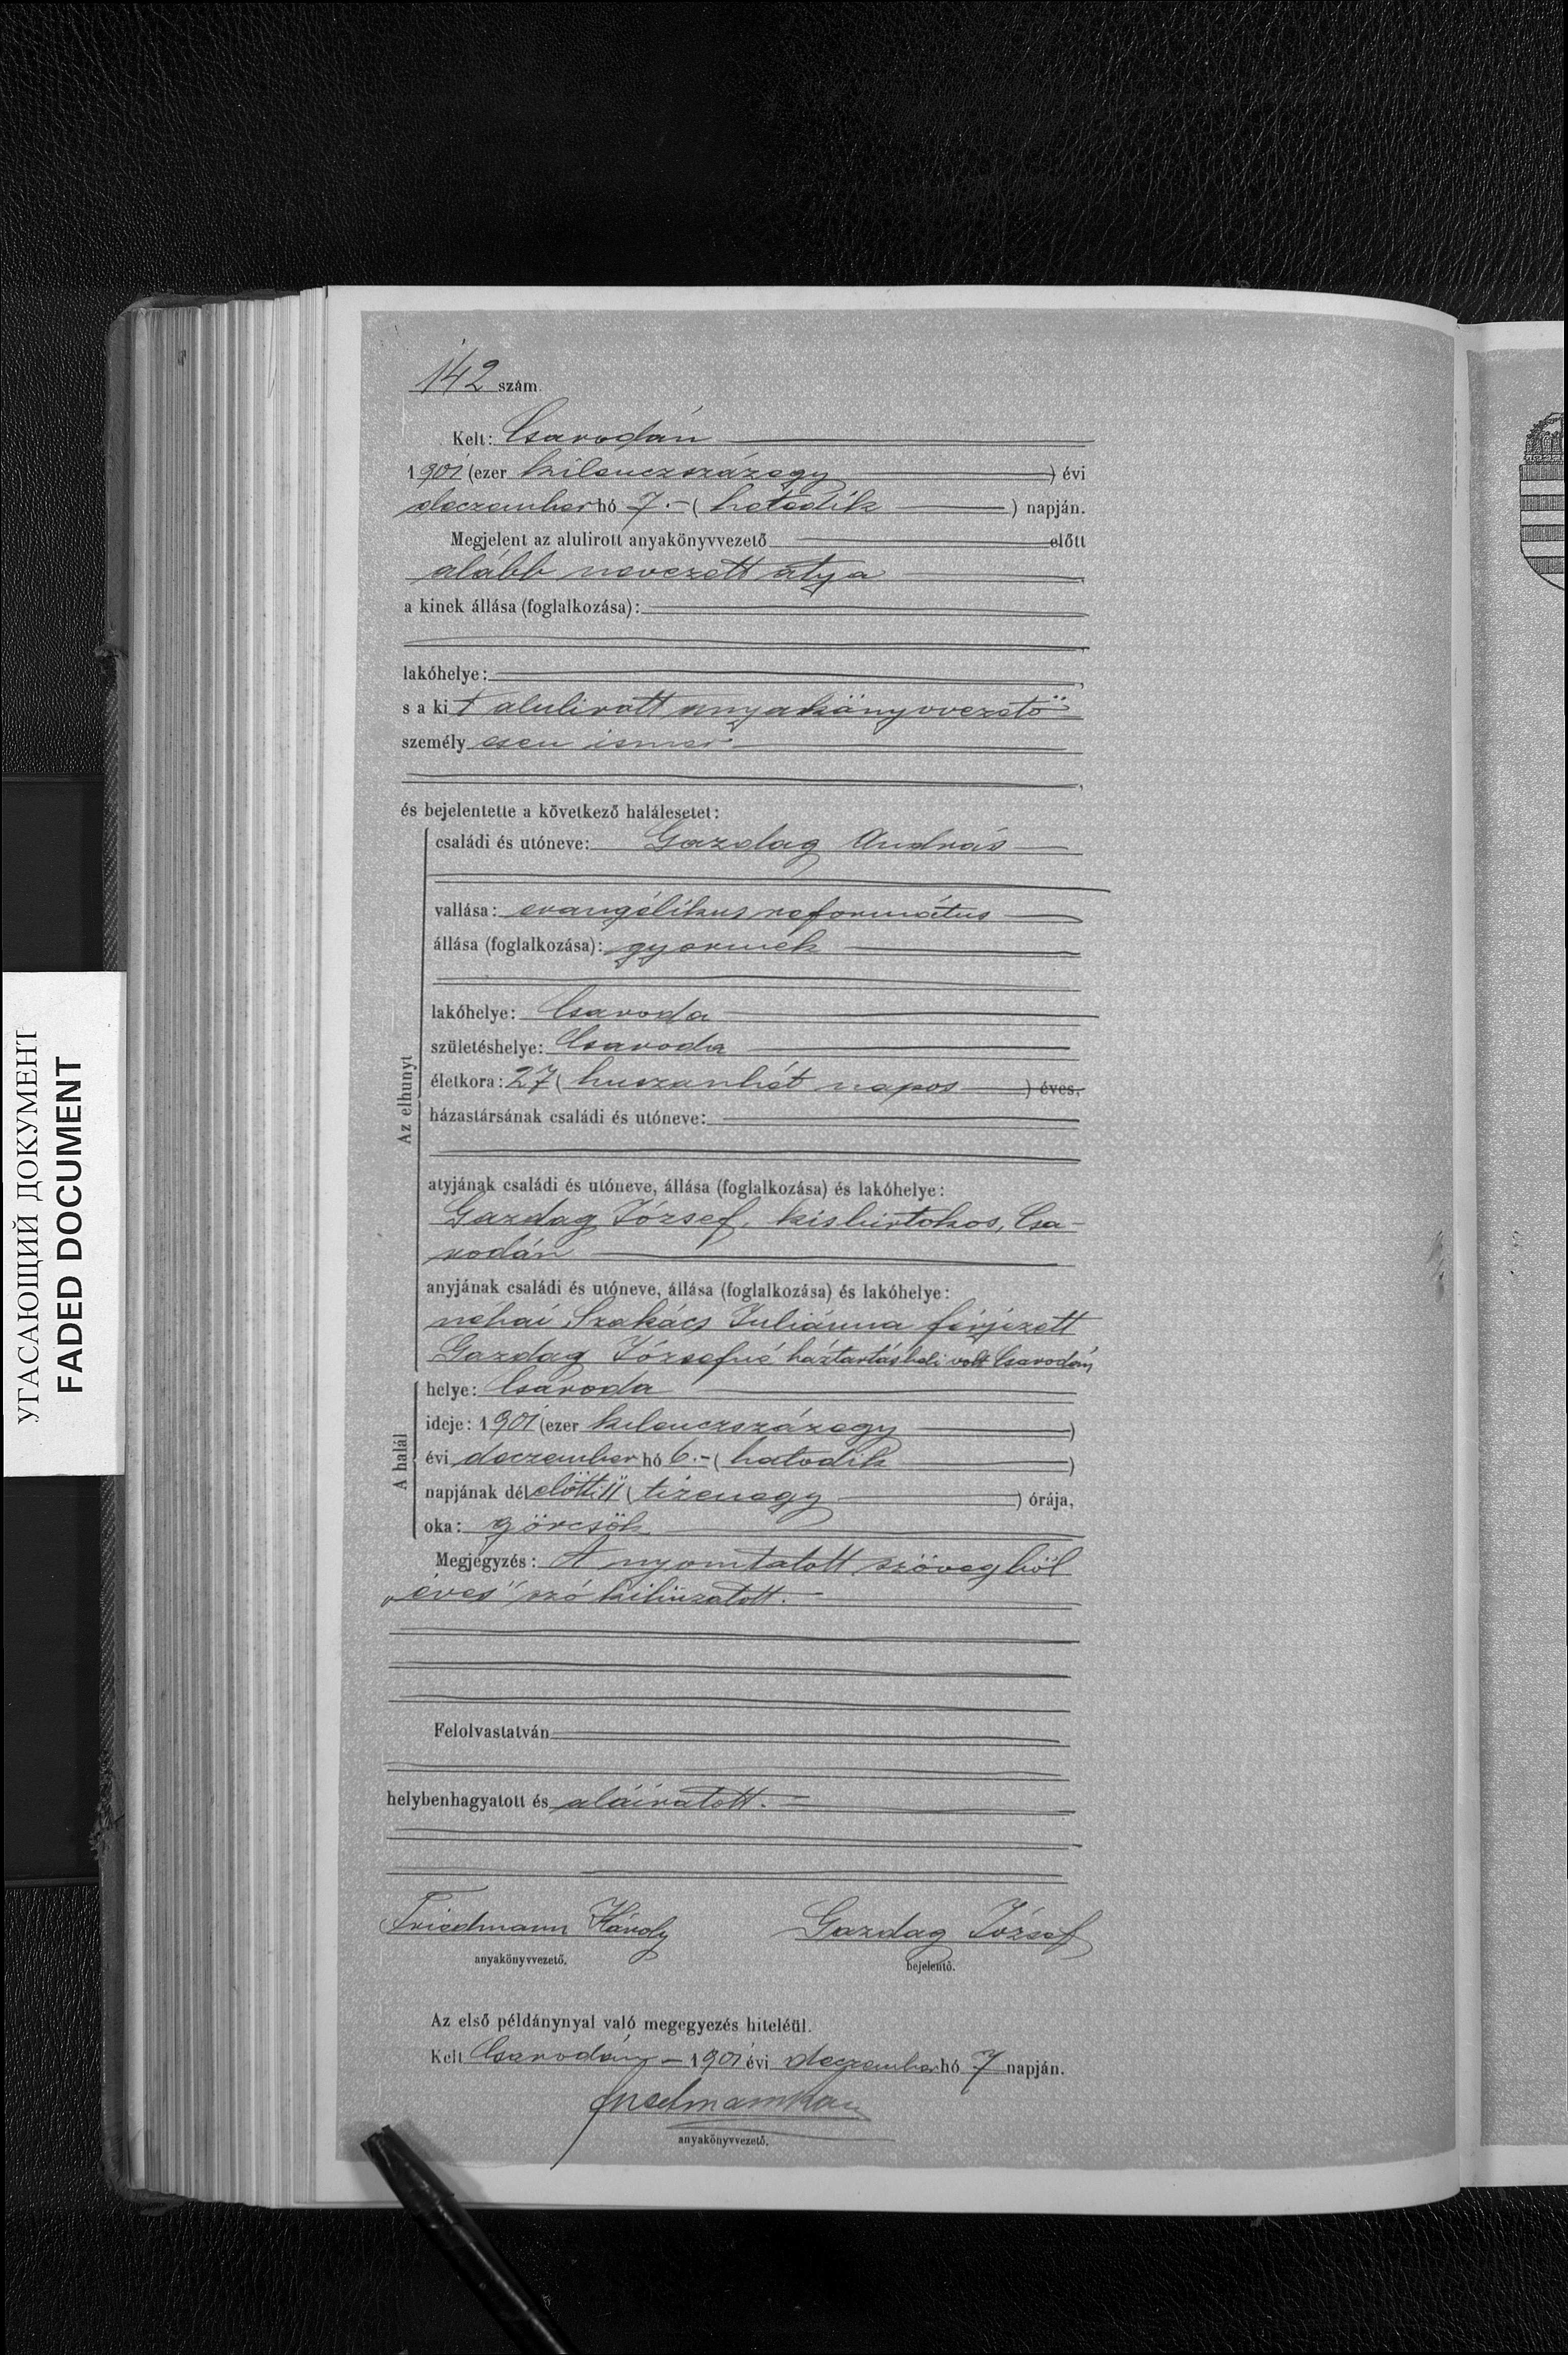 142 szám.
Kelt: Csarodán
1901 (ezer kilenczszázegy ) évi
deczember hó 7.- ( hetedik ) napján.
Megjelent az alulirott anyakönyvvezető előtt
alább nevezett atyja
a kinek állása (foglalkozása):
lakóhelye:
s a kit alulirott anyakönyvvezető
személyesen ismer
és bejelentette a következő halálesetet:
Az elhunyt
családi és utóneve: Gazdag András
vallása: evangélikus református
állása (foglalkozása): gyermek
lakóhelye: Csaroda
születéshelye: Csaroda
életkora: 27 ( huszonhét napos ) éves.
házastársának családi és utóneve:
atyjának családi és utóneve, állása (foglalkozása) és lakóhelye:
Gazdag József, kisbirtokos, Csa-
rodán
anyjának családi és utóneve, állása (foglalkozása) és lakóhelye:
néhai Szakács Juliánna férjezett
Gazdag Józsefné háztartásbeli volt Csarodán
A halál
helye: Csaroda
ideje: 1901 (ezer kilenczszázegy )
évi deczember hó 6.- ( hatodik )
napjának délelőtti 11 ( tizenegy ) órája,
oka: görcsök
Megjegyzés: A nyomtatott szövegből
„éves" szó kihúzatott.
Felolvastatván
helybenhagyatott és aláiratott.
Friedmann Károly Gazdag József
anyakönyvvezető. bejelentő.
Az első példánynyal való megegyezés hiteléül.
Kelt Csarodán - 1901 évi deczember hó 7 napján.
anyakönyvvezető.
УГАСАЮЩИЙ ДОКУМЕНТ
FADED DOCUMENT